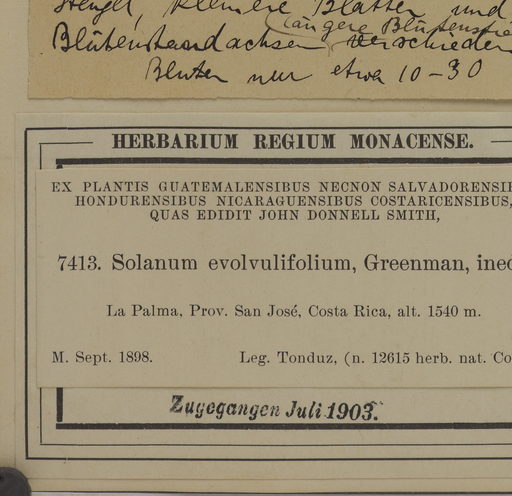 Stengel, kleinere Blätter und
längere Blütenstie
Blütenstandachsen verschieden
Blüten nur etwa 10-30
HERBARIUM REGIUM MONACENSE.
EX PLANTIS GUATEMALENSIBUS NECNON SALVADORENSIB
HONDURENSIBUS NICARAGUENSIBUS COSTARICENSIBUS,
QUAS EDIDIT JOHN DONNELL SMITH,
7413. Solanum evolvulifolium, Greenman, ined
La Palma, Prov. San José, Costa Rica, alt. 1540 m.
M. Sept. 1898. Leg. Tonduz, (n. 12615 herb. nat. Co
Zugegangen Juli 1903.